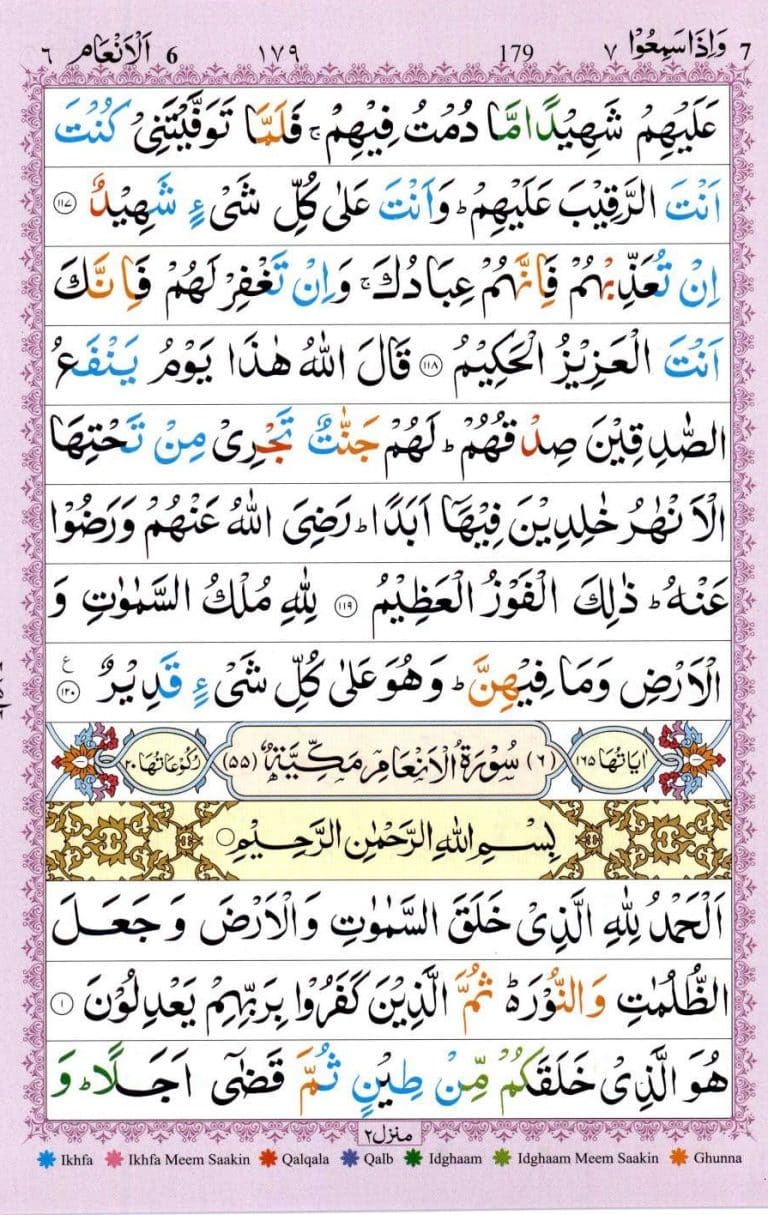 7 وَاِذَا سَمِعُوْا ٧ 179 ١٧٩ 6 اَلْاَنْعَام ٦
عَلَيْهِمْ شَهِيْدًا مَّا دُمْتُ فِيْهِمْ ۚ فَلَمَّا تَوَفَّيْتَنِيْ كُنْتَ
اَنْتَ الرَّقِيْبَ عَلَيْهِمْ ؕ وَاَنْتَ عَلٰى كُلِّ شَيْءٍ شَهِيْدٌ ١١٧
اِنْ تُعَذِّبْهُمْ فَاِنَّهُمْ عِبَادُكَ ۚ وَاِنْ تَغْفِرْ لَهُمْ فَاِنَّكَ
اَنْتَ الْعَزِيْزُ الْحَكِيْمُ ١١٨ قَالَ اللّٰهُ هٰذَا يَوْمُ يَنْفَعُ
الصّٰدِقِيْنَ صِدْقُهُمْ ؕ لَهُمْ جَنّٰتٌ تَجْرِيْ مِنْ تَحْتِهَا
الْاَنْهٰرُ خٰلِدِيْنَ فِيْهَاۤ اَبَدًا ؕ رَضِيَ اللّٰهُ عَنْهُمْ وَرَضُوْا
عَنْهُ ؕ ذٰلِكَ الْفَوْزُ الْعَظِيْمُ ١١٩ لِلّٰهِ مُلْكُ السَّمٰوٰتِ وَ
الْاَرْضِ وَمَا فِيْهِنَّ ؕ وَهُوَ عَلٰى كُلِّ شَيْءٍ قَدِيْرٌ ١٢٠ ع
اٰيَاتُهَا ١٦٥ (٦) سُوْرَةُ الْاَنْعَامِ مَكِّيَّةٌ (٥٥) رُكُوْعَاتُهَا ٢٠
بِسْمِ اللّٰهِ الرَّحْمٰنِ الرَّحِيْمِ
اَلْحَمْدُ لِلّٰهِ الَّذِيْ خَلَقَ السَّمٰوٰتِ وَالْاَرْضَ وَجَعَلَ
الظُّلُمٰتِ وَالنُّوْرَ ؕ۬ ثُمَّ الَّذِيْنَ كَفَرُوْا بِرَبِّهِمْ يَعْدِلُوْنَ ١
هُوَ الَّذِيْ خَلَقَكُمْ مِّنْ طِيْنٍ ثُمَّ قَضٰۤى اَجَلًا ؕ وَ
منزل ٢
Ikhfa Ikhfa Meem Saakin Qalqala Qalb Idghaam Idghaam Meem Saakin Ghunna